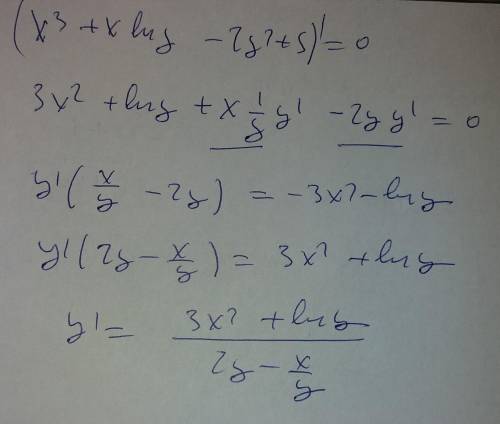 (x³ + x ln y - 2y² + 5)' = 0
3x² + ln y + x 1/y y' - 2y y' = 0
y' (x/y - 2y) = -3x² - ln y
y' (2y - x/y) = 3x² + ln y
y' = (3x² + ln y)/(2y - x/y)